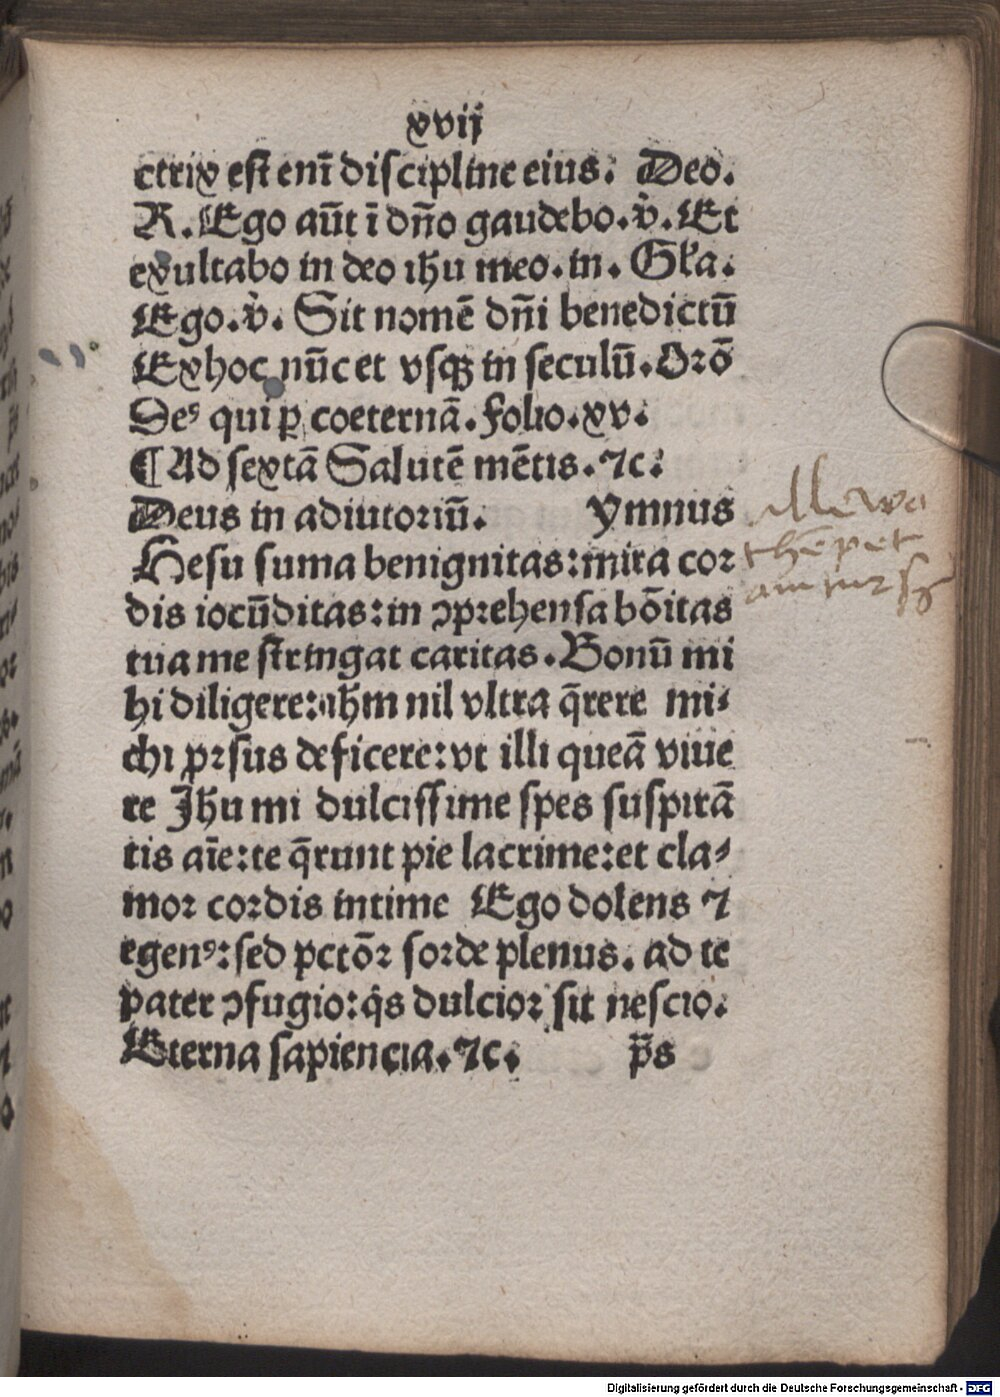 xvij
ctrix est eni̅ discipline eius: Deo.
R. Ego au̅t i̅ dn̅o gaudebo. v̉. Et
exultabo in deo ihu meo. in. Gl'a.
Ego. v̉. Sit nome̅ dn̅i benedictu̅
Exhoc nu̅c et vsqꝫ in seculu̅. Oro̅
Deꝰ qui ꝑ coeterna̅. folio. xv.
¶ Ad sexta̅ Salute̅ me̅tis. ⁊c.
Deus in adiutoriu̅. Ymnus
Hesu suma benignitas: mira cor
dis iocu̅ditas: in ↄprehensa bo̅itas
tua me stringat caritas. Bonu̅ mi
hi diligere: ihm̅ nil vltra q̅rere mi⸗
chi ꝓrsus deficere: vt illi quea̅ viue
re Jhu mi dulcissime spes suspira̅
tis ai̅e: te q̅runt pie lacrime: et cla⸗
mor cordis intime Ego dolens ⁊
egenꝰ: sed pcto̅ꝛ sorde plenus. ad te
pater ↄfugio: q̉s dulcior sit nescio.
Eterna sapiencia. ⁊c. ps̅